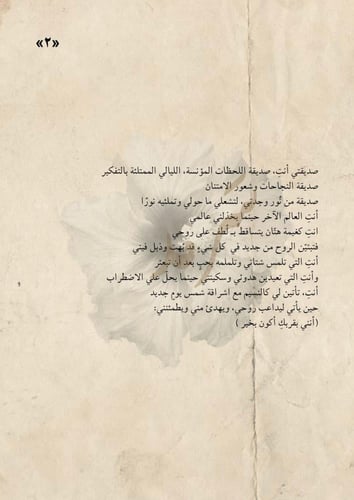 «٢»
صديقتي أنتِ، صديقة اللحظات المؤنسة، الليالي الممتلئة بالتفكير
صديقة النجاحات وشعور الامتنان
صديقة من نُور وجدتي، لتشعلي ما حولي وتملئيه نورًا
أنتِ العالم الآخر حينما يخذلني عالمي
انتِ كغيمة هتّان يتساقط بـ لُطف على روحي
فتبتيّن الروح من جديد في كل شيءٍ قد بُهت وذبل فيني
أنتِ التي تلمس شتاتي وتلملمه بحب بعد أن تبعثر
وأنتِ التي تعيدين هدوئي وسكينتي حينما يحلّ علي الاضطراب
أنتِ، تأتين لي كالنسيم مع اشراقة شمس يومٍ جديد
حين يأتي ليداعب روحي، ويهدئ مني ويطمئنني:
(أنني بقربكِ أكون بخير )